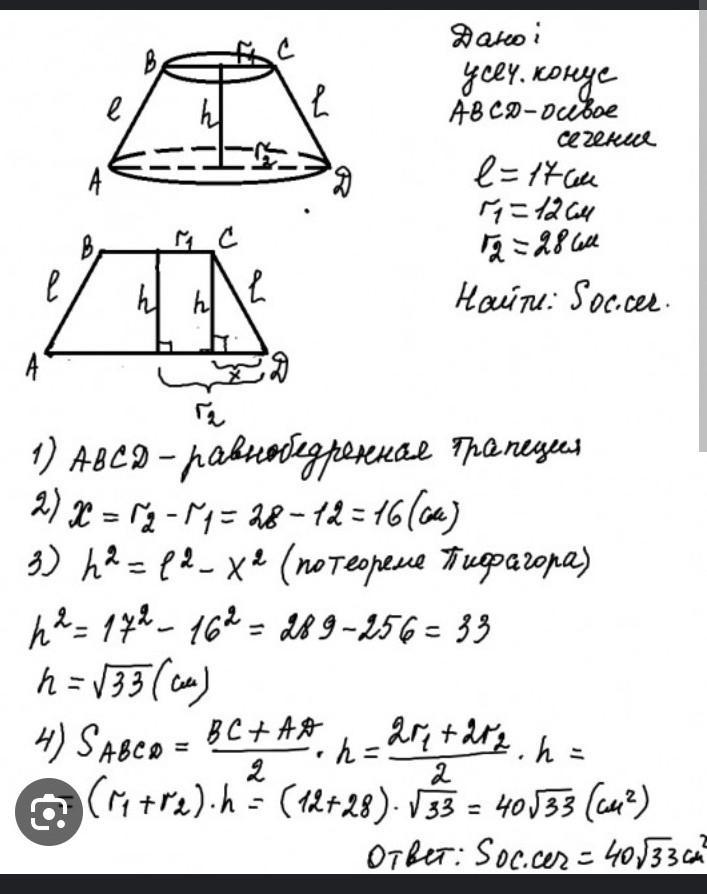 Дано:
усеч. конус
ABCD - осевое
сечение
l = 17 см
r₁ = 12 см
r₂ = 28 см
Найти: Sос.сеч.
B r₁ C
l h l
A r₂ D
B r₁ C
l h h l
A x D
r₂
1) ABCD - равнобедренная трапеция
2) x = r₂ - r₁ = 28 - 12 = 16 (см)
3) h² = l² - x² (по теореме Пифагора)
h² = 17² - 16² = 289 - 256 = 33
h = √33 (см)
4) S_ABCD = (BC + AD)/2 · h = (2r₁ + 2r₂)/2 · h =
= (r₁ + r₂) · h = (12 + 28) · √33 = 40√33 (см²)
Ответ: Sос.сеч = 40√33 см²